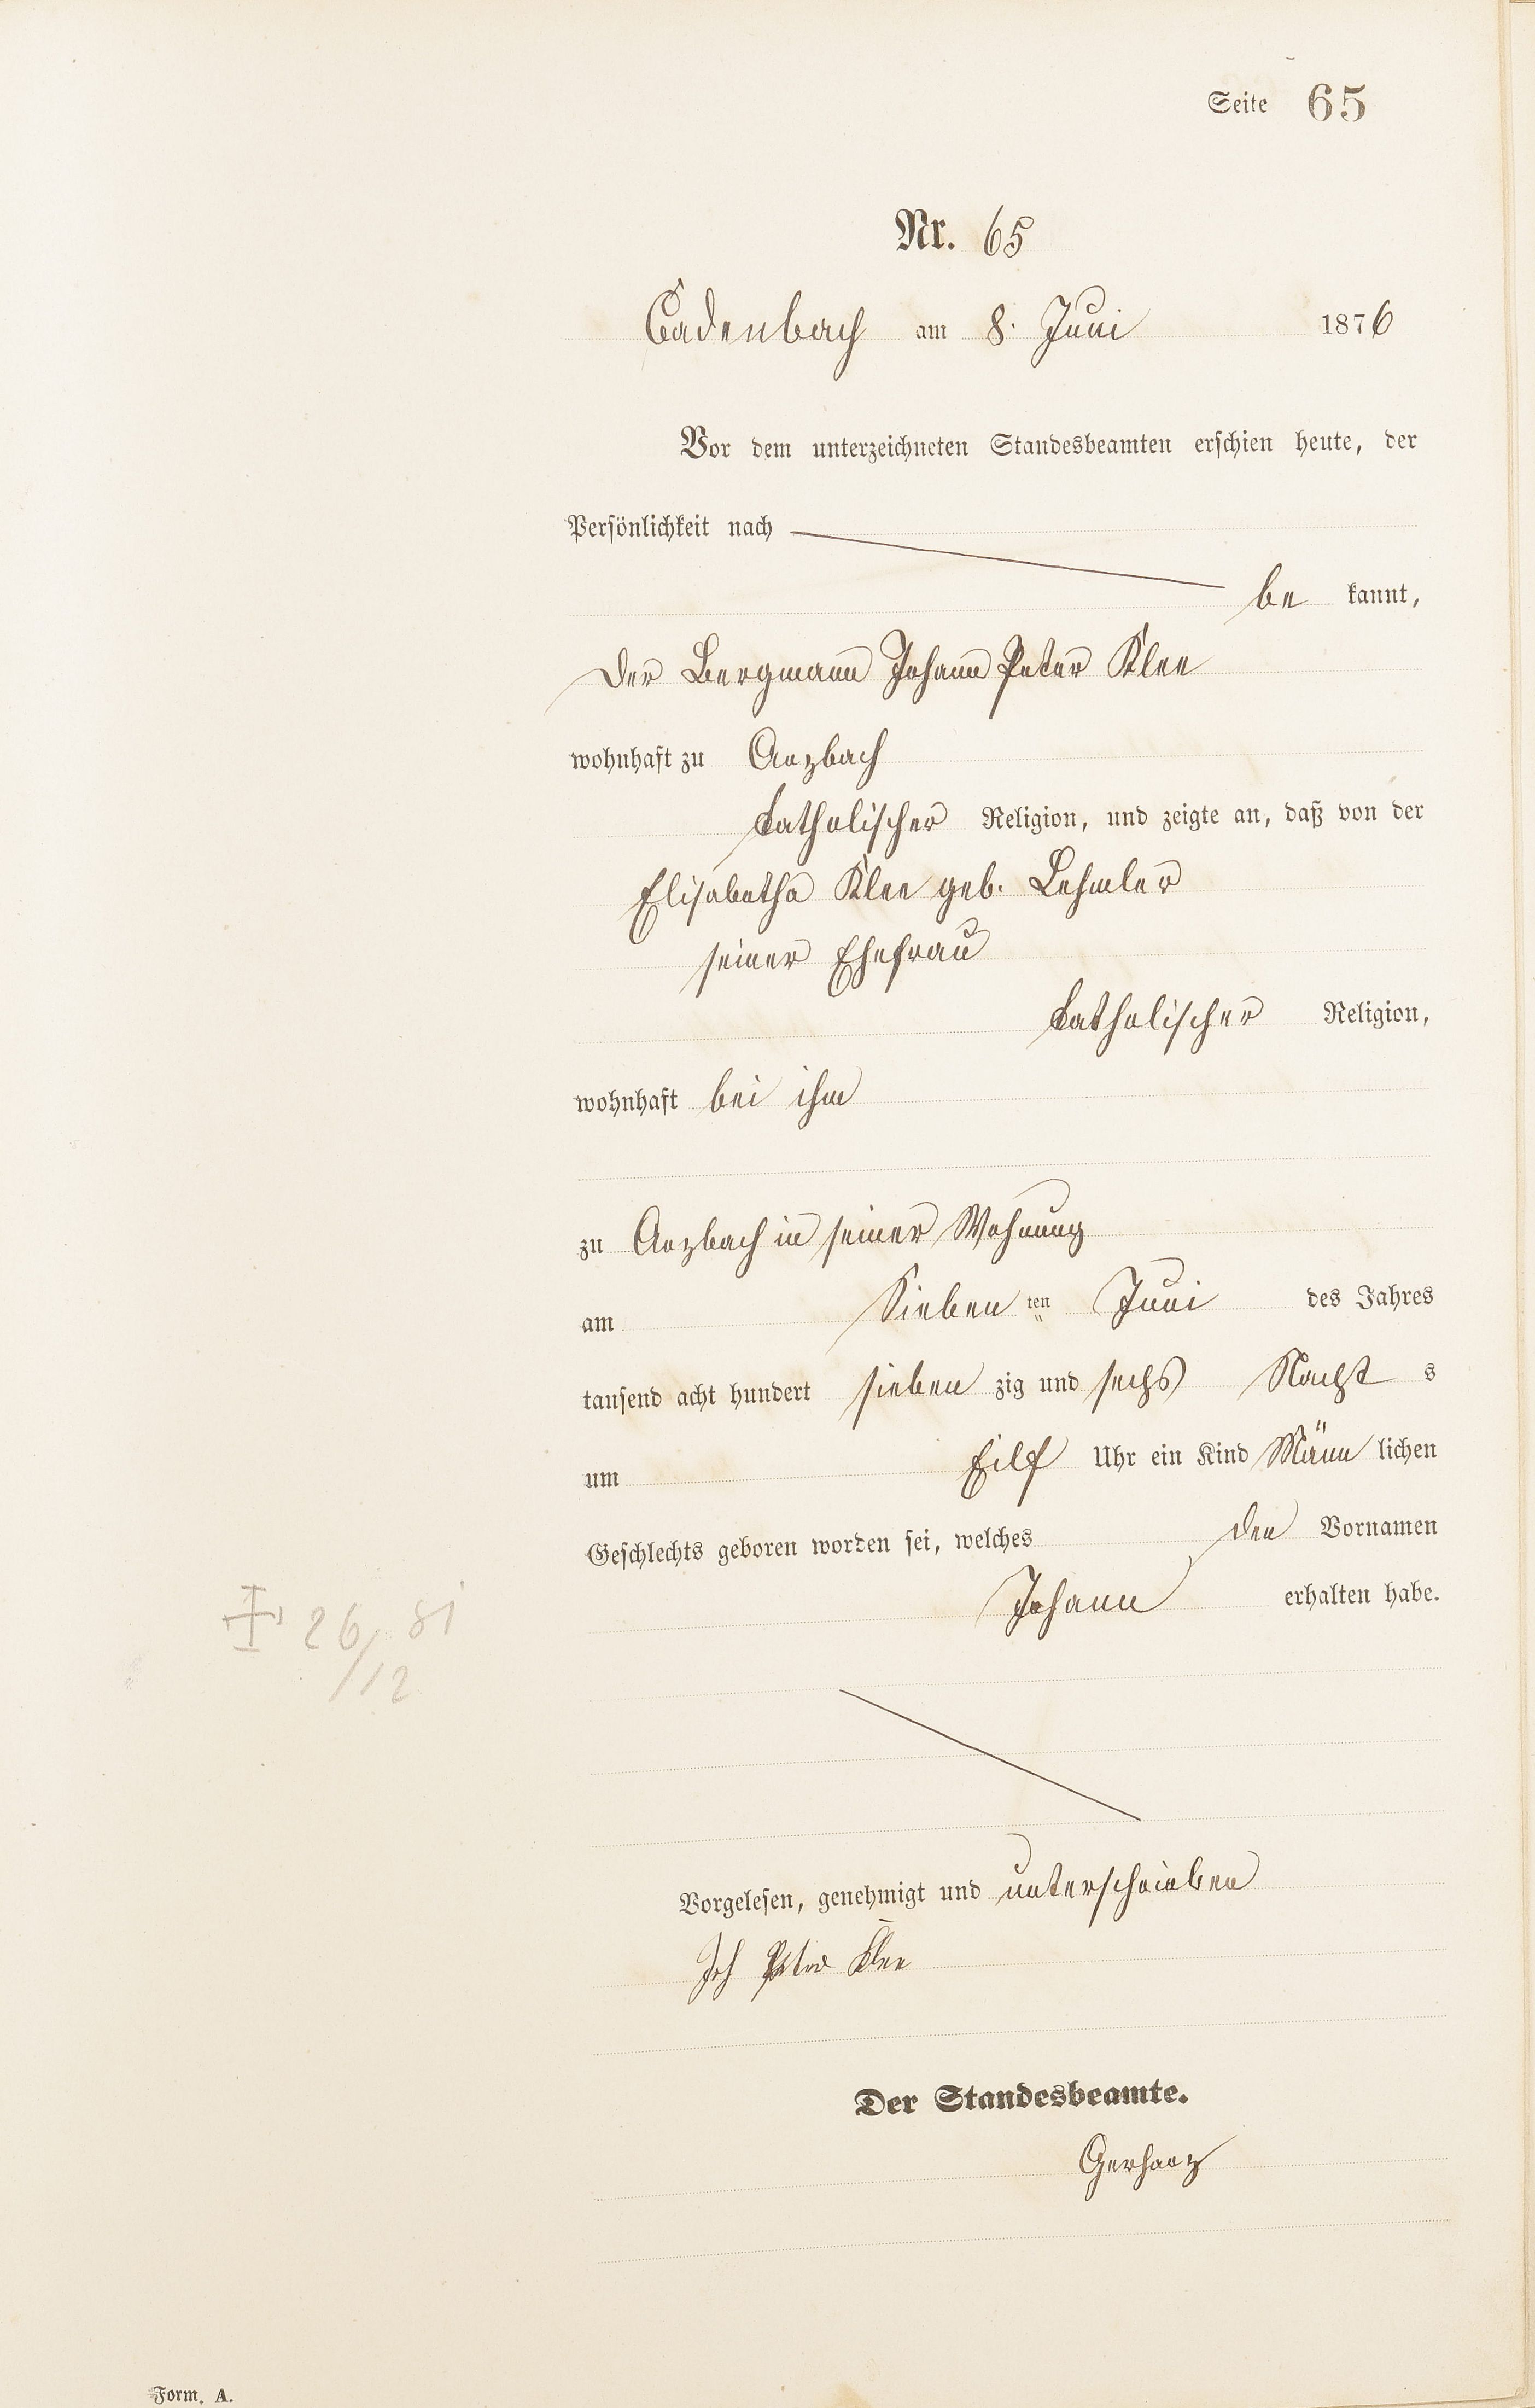 Seite 65
Nr. 65
Cadenbach am 8. Juni 1876
Vor dem unterzeichneten Standesbeamten erschien heute, der
Persönlichkeit nach
be kannt,
Der Bergmann Johann Peter Klee
wohnhaft zu Arzbach
katholischer Religion, und zeigte an, daß von der
Elisabetha Klee geb. Lehmler
seiner Ehefrau
katholischer Religion,
wohnhaft bei ihm
zu Arzbach in seiner Wohnung
am Sieben ten Juni des Jahres
tausend acht hundert sieben zig und sechs Nacht s
um Eilf Uhr ein Kind Männ lichen
Geschlechts geboren worden sei, welches den Vornamen
Johann erhalten habe.
26/12 81
Vorgelesen, genehmigt und unterschrieben
Joh Peter Klee
Der Standesbeamte.
Gerharz
Form. A.